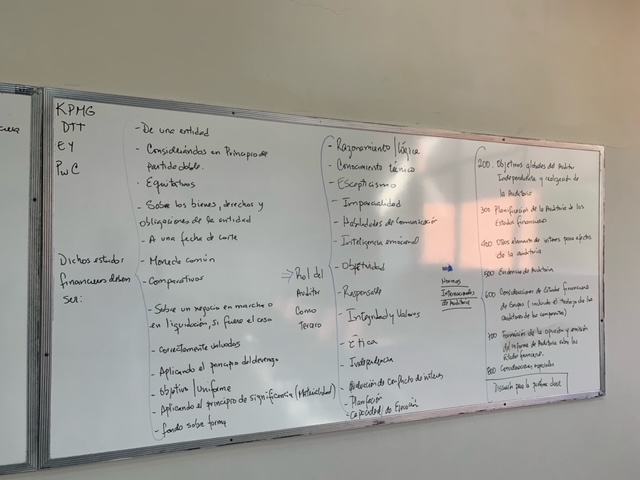 KPMG
DTT
EY
PwC
Dichos estados
financieros deben
ser:
- De una entidad
- Considerándose en Principio de
partida doble.
- Equitativos
- Sobre los bienes, derechos y
obligaciones de la entidad
- A una fecha de corte
- Moneda común
- Comparativos
- Sobre un negocio en marcha o
en liquidación, si fuere el caso
- Correctamente valuados
- Aplicando el principio del devengo
- Objetivo / Uniforme
- Aplicando el principio de significancia (Materialidad)
- fondo sobre forma
⇒ Rol del
Auditor
Como
Tercero
- Razonamiento / Lógica
- Conocimiento técnico
- Escepticismo
- Imparcialidad
- Habilidades de Comunicación
- Inteligencia emocional
- Objetividad
- Responsable
- Integridad y Valores
- Ética
- Independencia
- conflicto de interés
- Planificación
- Capacidad de
Normas
Internacionales
de Auditoría
200. Objetivos globales del Auditor
Independiente y realización de
la Auditoría
300 Planificación de la Auditoría de los
Estados financieros
400 Otros elementos de para efectos
de la auditoría
500 Evidencia de Auditoría
600 Consideraciones de Estados financieros
de Grupo (incluido el trabajo de los
Auditores de los componentes)
700 Formación de la opinión y emisión
del informe de Auditoría sobre los
Estados financieros.
800 Consideraciones especiales
Discusión para la próxima clase